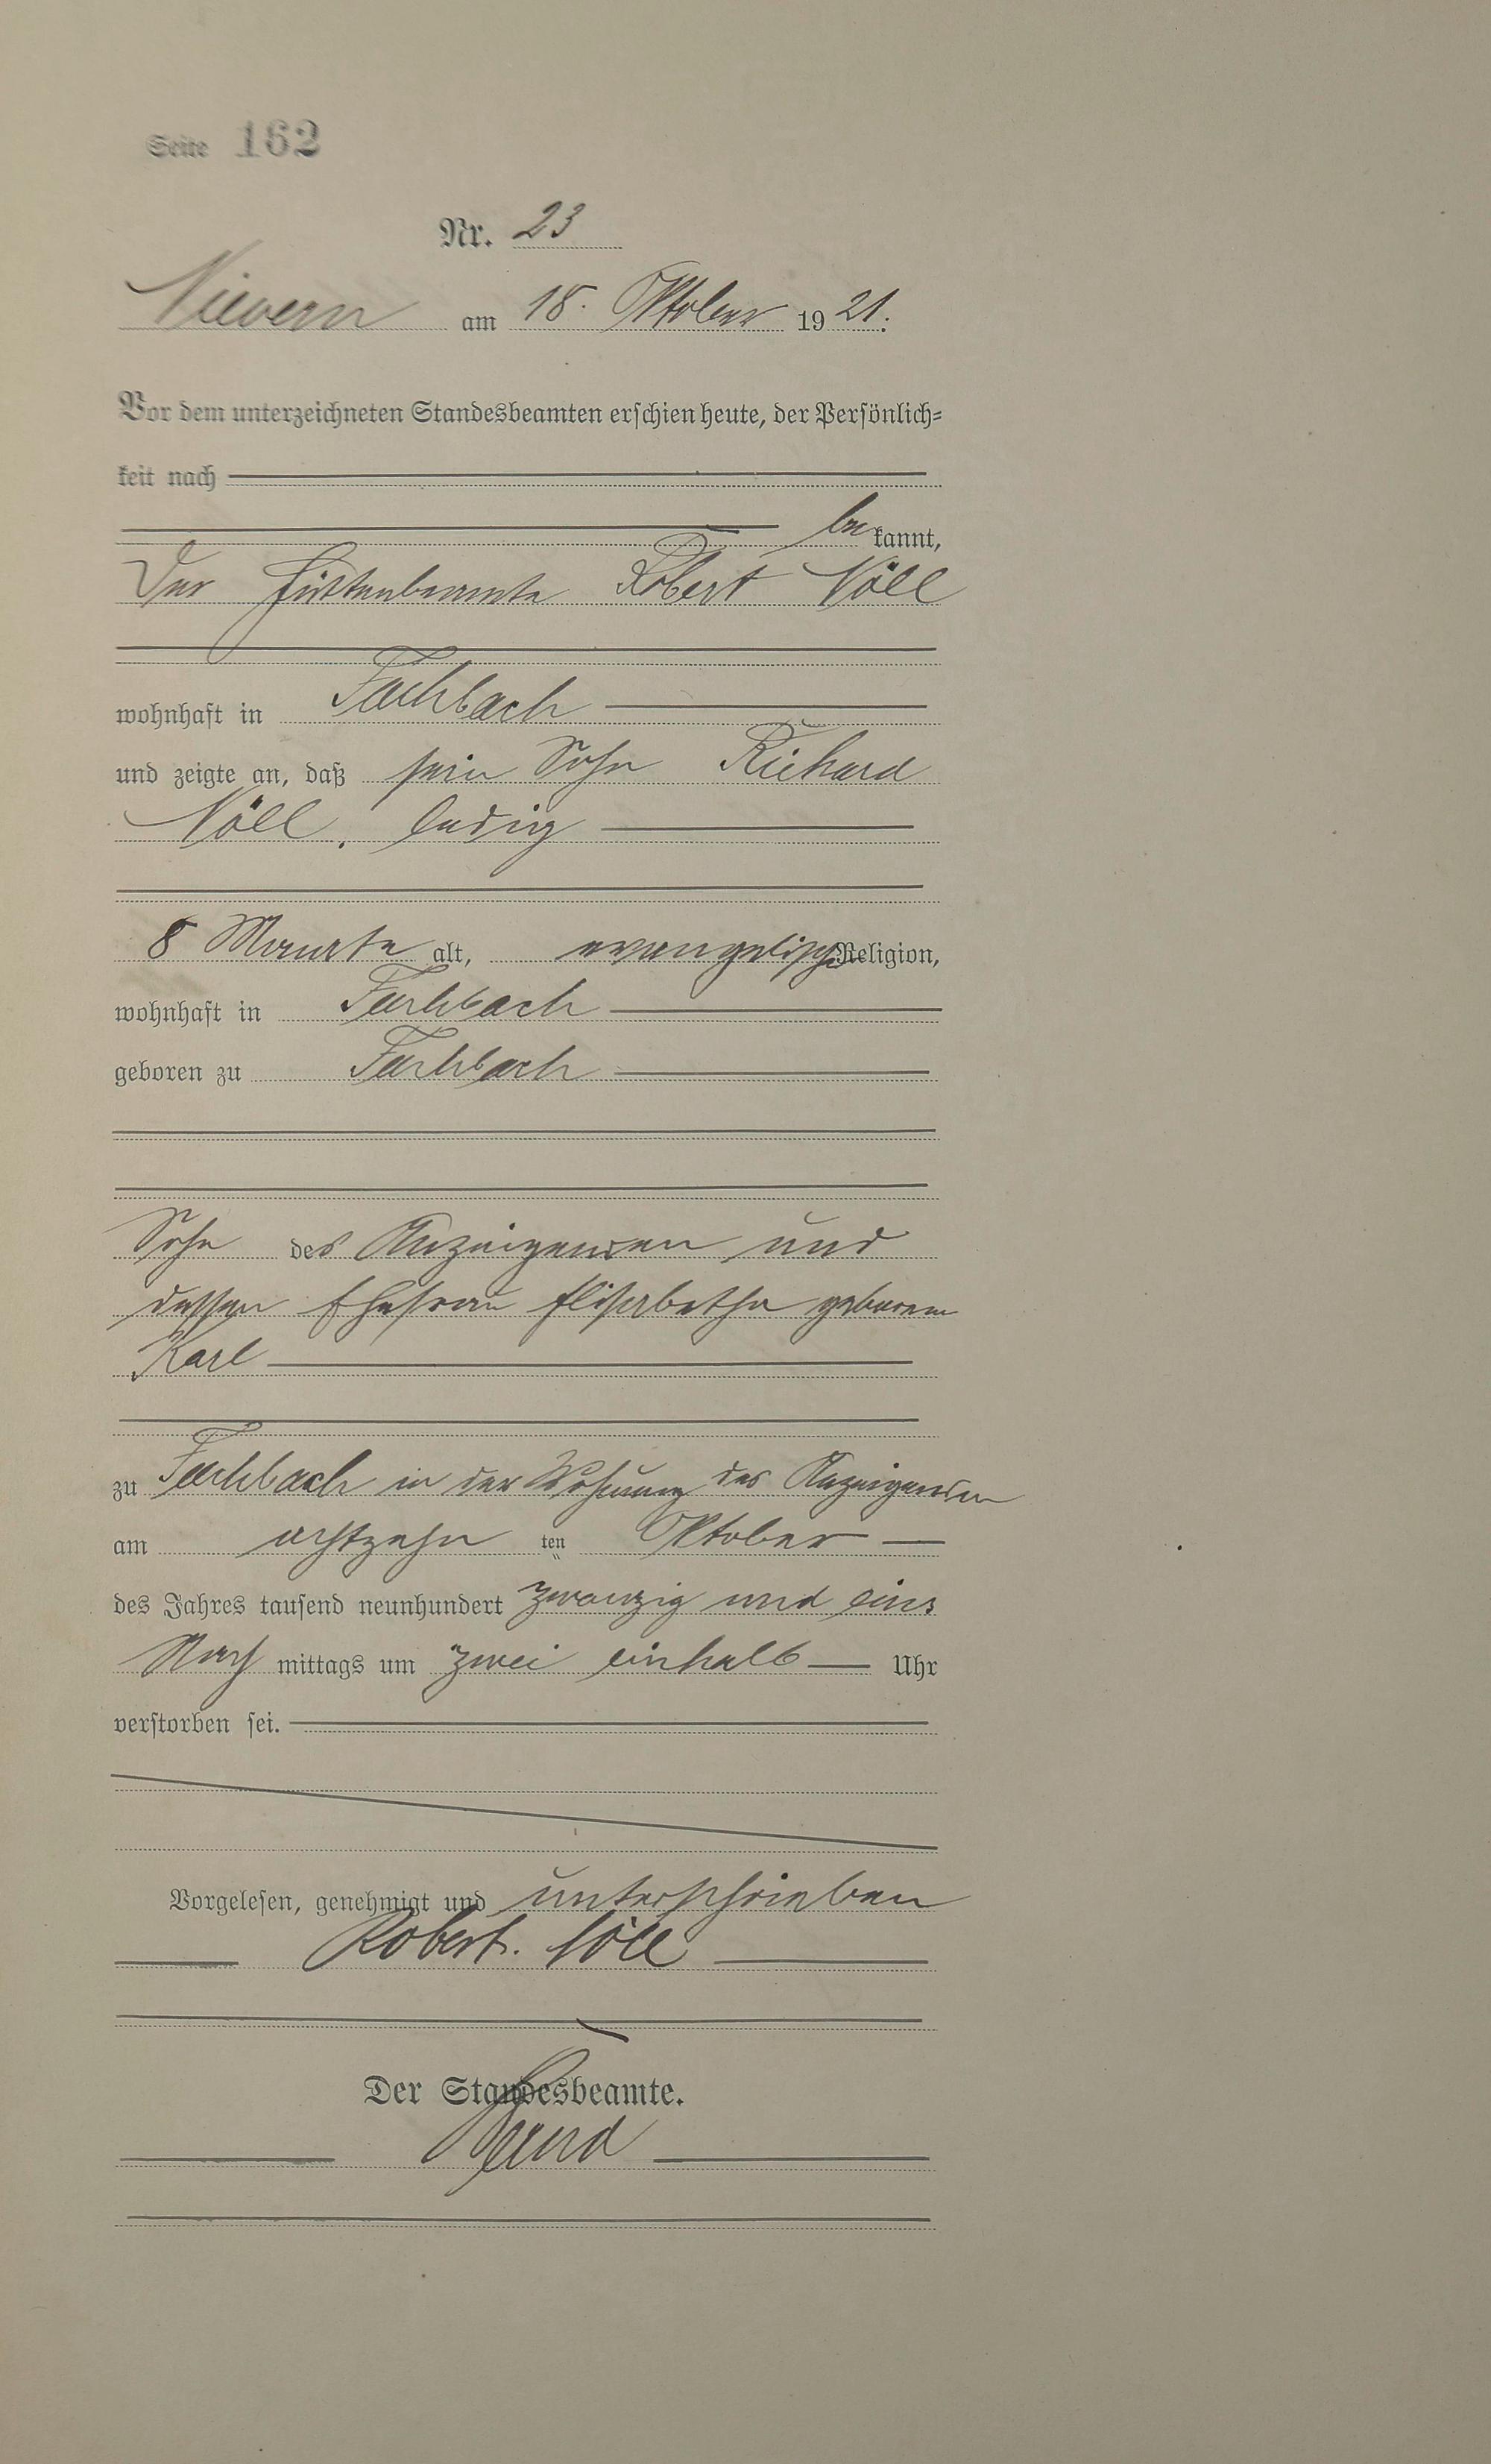 Seite 162
Nr. 23
Nievern am 18. Oktober 1921.
Vor dem unterzeichneten Standesbeamten erschien heute, der Persönlich=
keit nach
bekannt,
Der Hüttenbeamte Robert Nöll
wohnhaft in Fachbach
und zeigte an, daß sein Sohn Richard
Nöll, ledig
8 Monate alt, evangelischer Religion,
wohnhaft in Fachbach
geboren zu Fachbach
Sohn des Anzeigenden und
dessen Ehefrau Elisabetha geborene
Karl
zu Fachbach in der Wohnung des Anzeigenden
am achtzehn ten Oktober
des Jahres tausend neunhundert zwanzig und eins
Nachmittags um zwei einhalb Uhr
verstorben sei.
Vorgelesen, genehmigt und unterschrieben
Robert. Nöll
Der Standesbeamte.